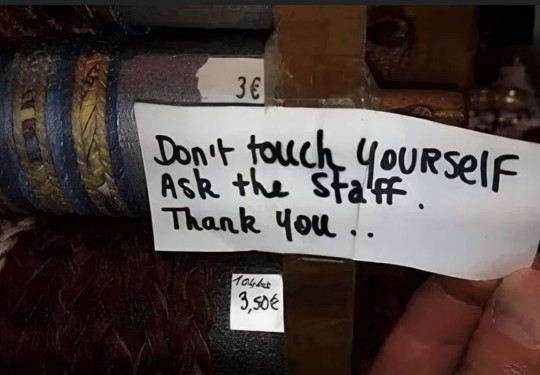 3€
Don't touch YOURSElF
Ask the Staff.
Thank You ..
3,50€